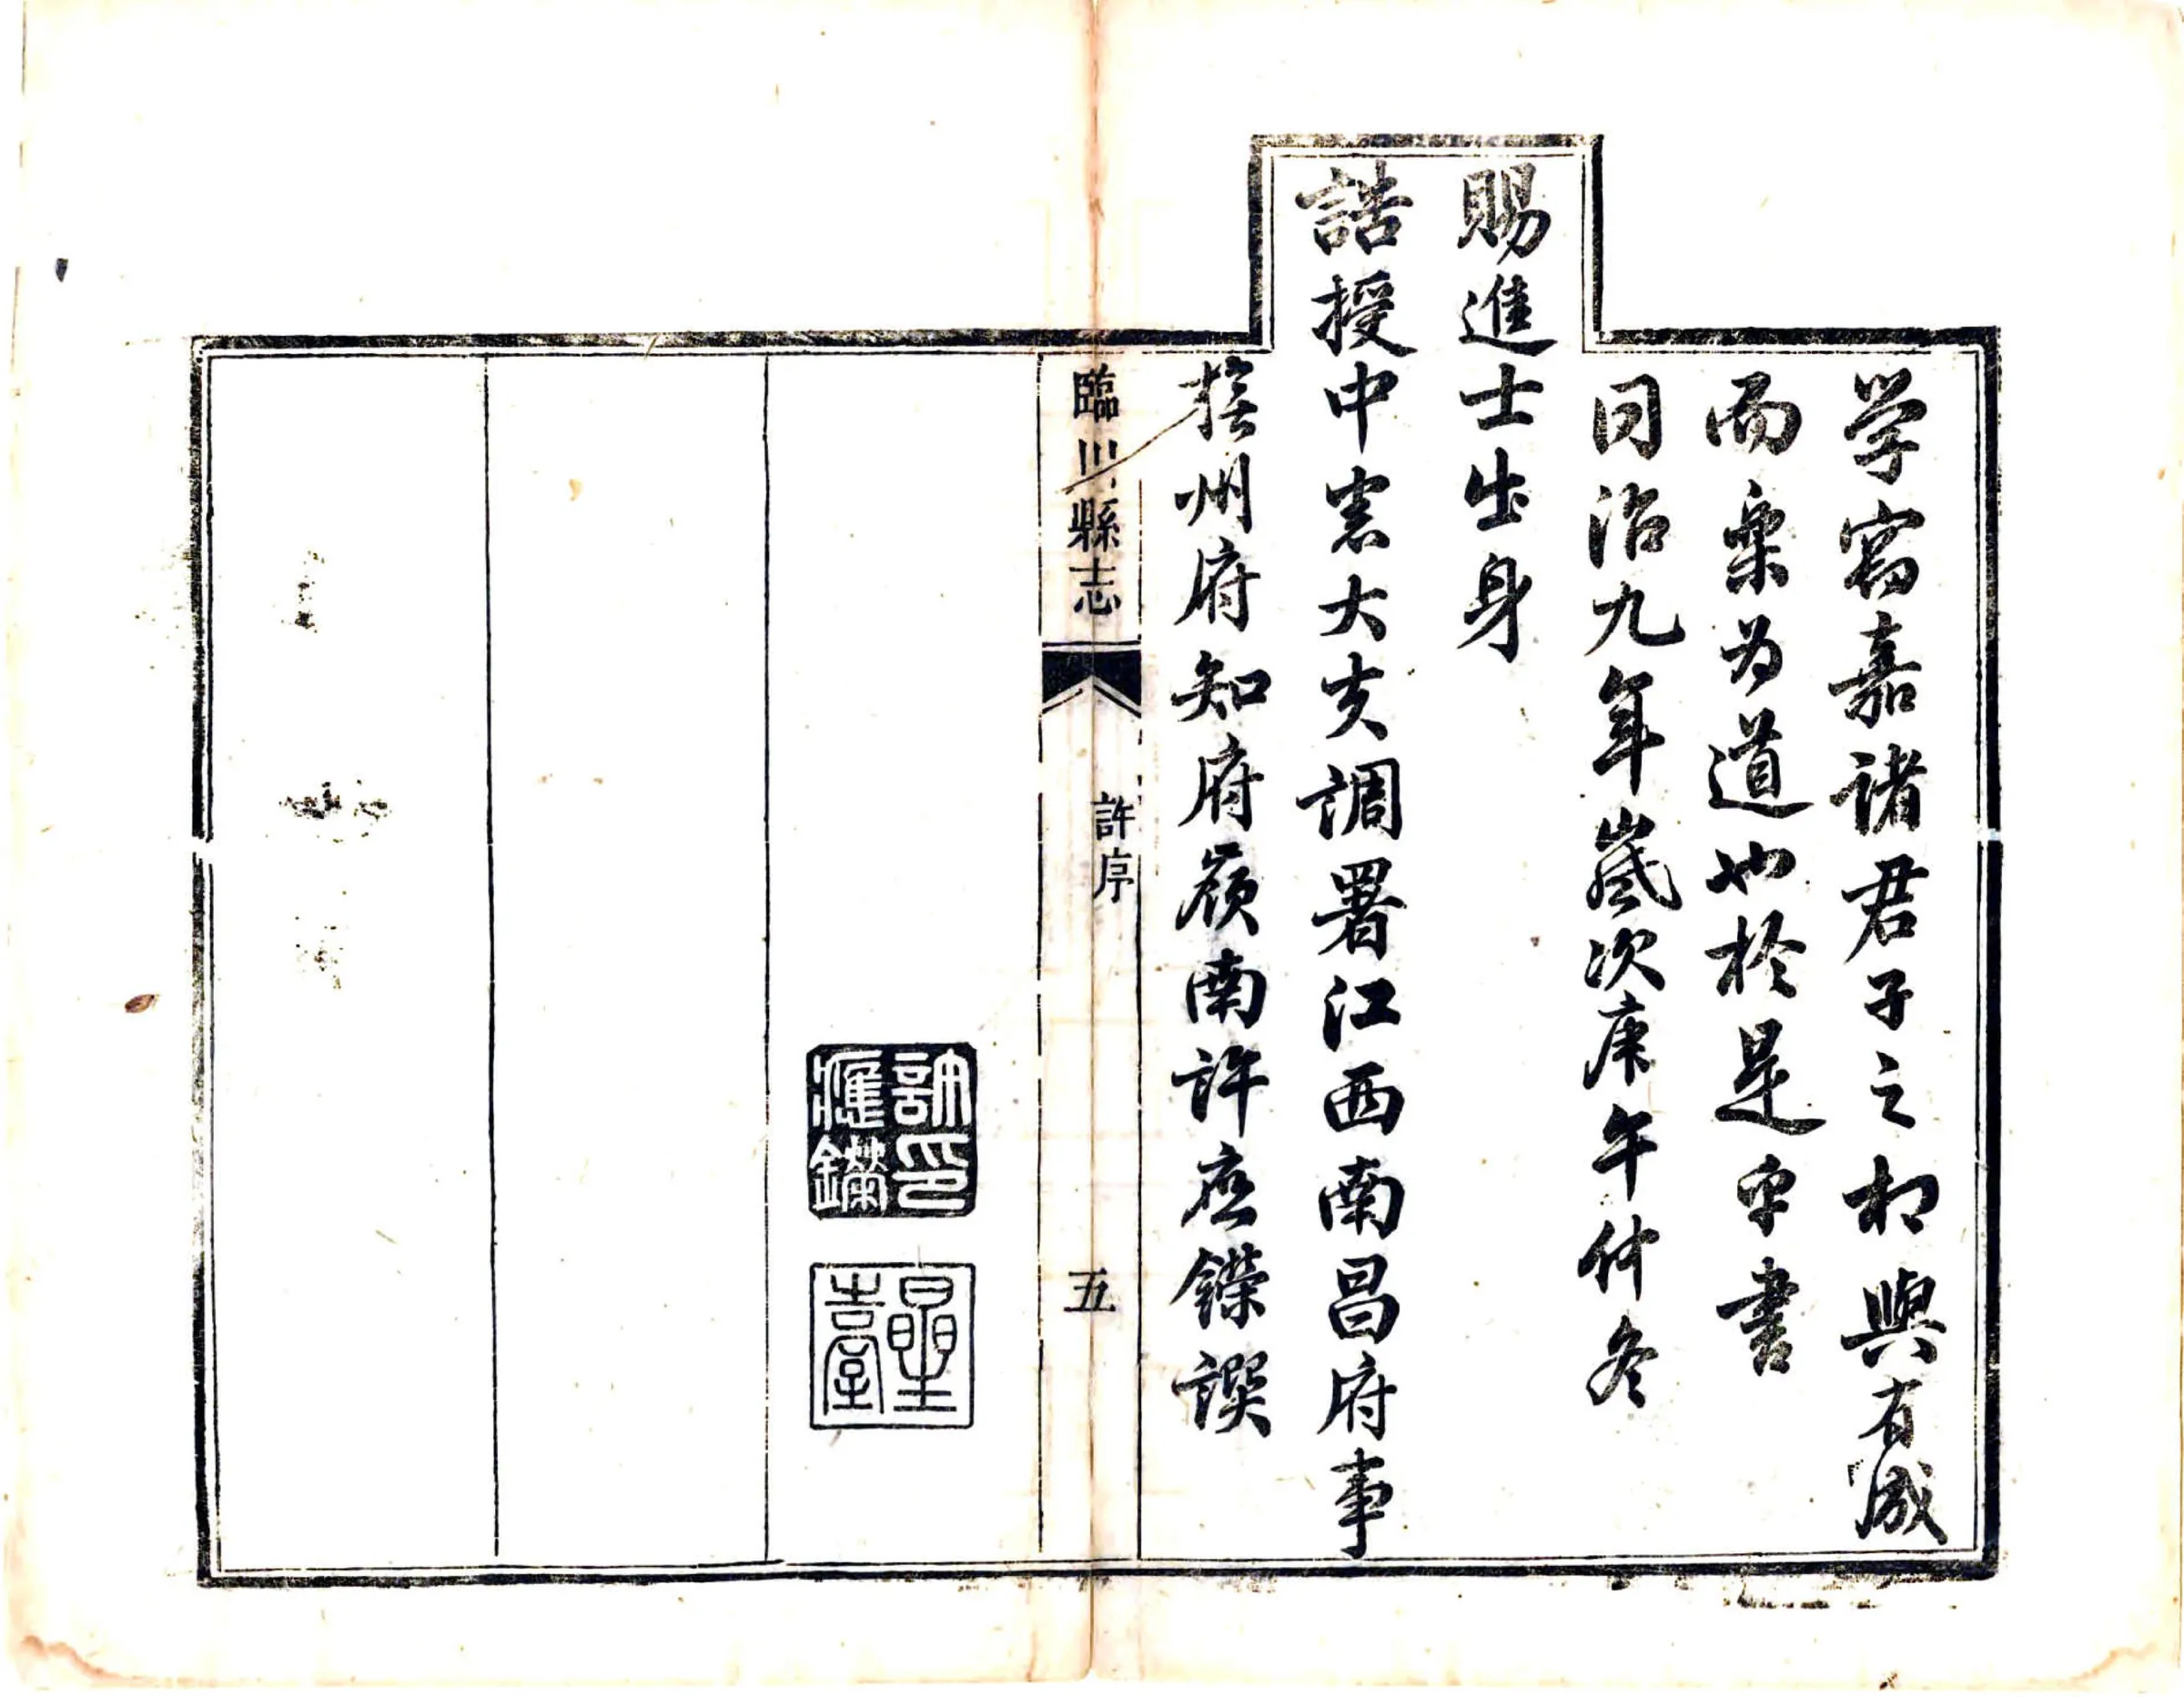 学窃嘉诸君子之相與有成
而樂为道也於是乎書
同治九年歲次庚午仲冬
賜進士出身
誥授中憲大夫調署江西南昌府事
撫州府知府嶺南許應鑅譔
臨川縣志
許序
五
許印應鑅
星臺